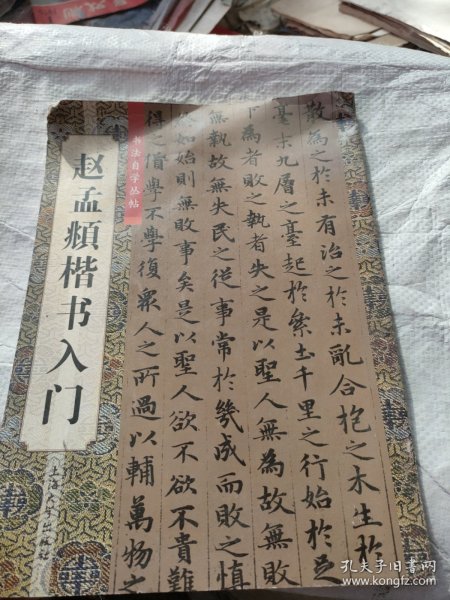 散為之於未有治之於未亂合抱之木生於
毫末九層之臺起於絫土千里之行始於足
下為者敗之執者失之是以聖人無為故無敗
無執故無失民之從事常於幾成而敗之慎
終如始則無敗事矣是以聖人欲不欲不貴難
得之貨學不學復衆人之所過以輔萬物之
书法自学丛帖
赵孟頫楷书入门
孔夫子旧书网